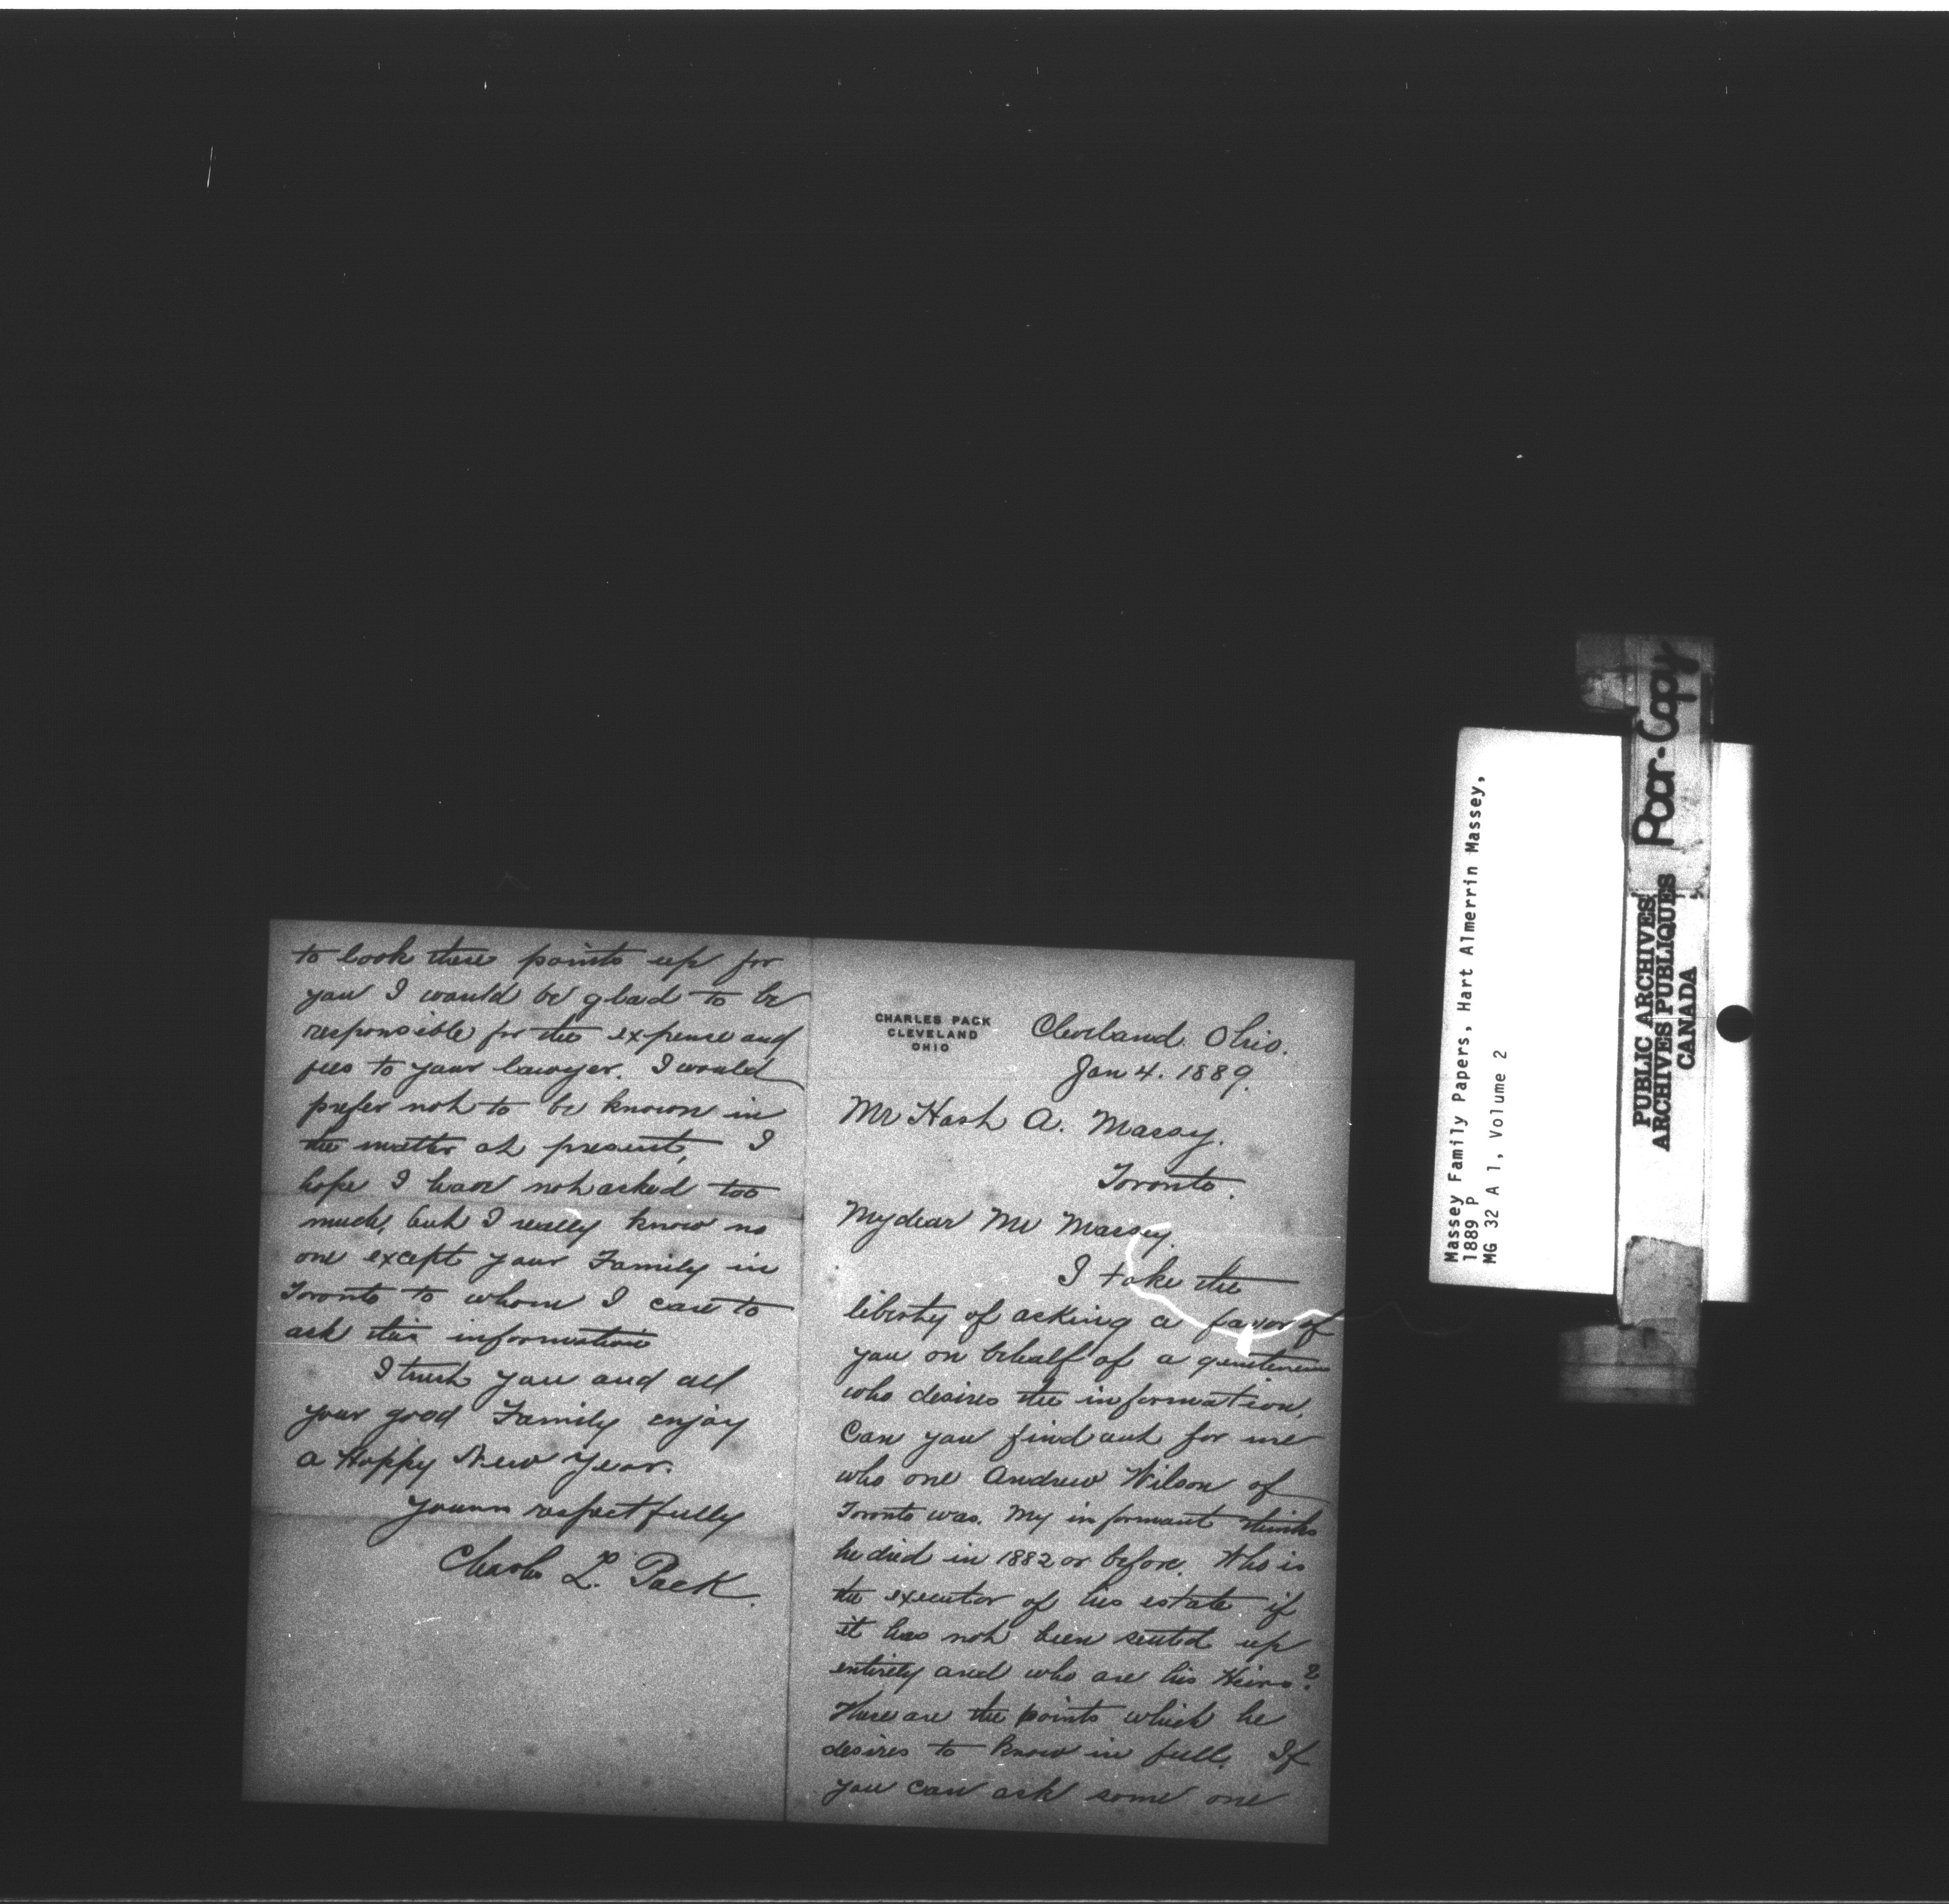 CHARLES PACK
CLEVELAND
OHIO
Cleveland. Ohio.
Jan 4. 1889.
Mr Hart A. Massey.
Toronto.
My dear Mr Massey.
I take the
liberty of asking a favor of
you on behalf of a gentleman
who desires the information.
Can you find out for me
who one Andrew Wilson of
Toronto was. My informant thinks
he died in 1882 or before. Who is
the executor of his estate if
it has not been settled up
entirely and who are his Heirs?
These are the points which he
desires to know in full. If
you can ask some one
to look these points up for
you I would be glad to be
responsible for the expense and
fees to your lawyer. I would
prefer not to be known in
the matter at present, I
hope I have not asked too
much, but I really know no
one except your Family in
Toronto to whom I care to
ask this information
I trust you and all
your good Family enjoy
a Happy New Year.
Yours respectfully
Charles L. Pack.
Massey Family Papers, Hart Almerrin Massey,
1889 P
MG 32 A 1, Volume 2
Poor-Copy
PUBLIC ARCHIVES
ARCHIVES PUBLIQUES
CANADA